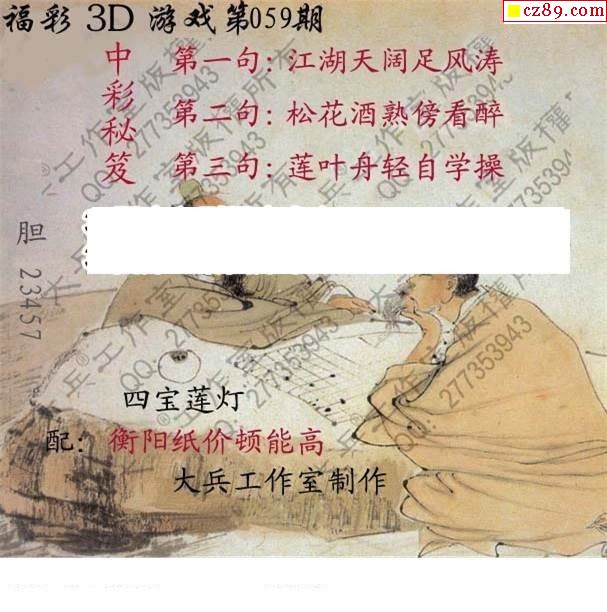 cz89.com
福彩 3D 游戏第059期
中彩秘笈
第一句：江湖天阔足风涛
第二句：松花酒熟傍看醉
第三句：莲叶舟轻自学操
胆 23457
四宝莲灯
配：衡阳纸价顿能高
大兵工作室制作
大兵®工作室版权所有
QQ：277353943